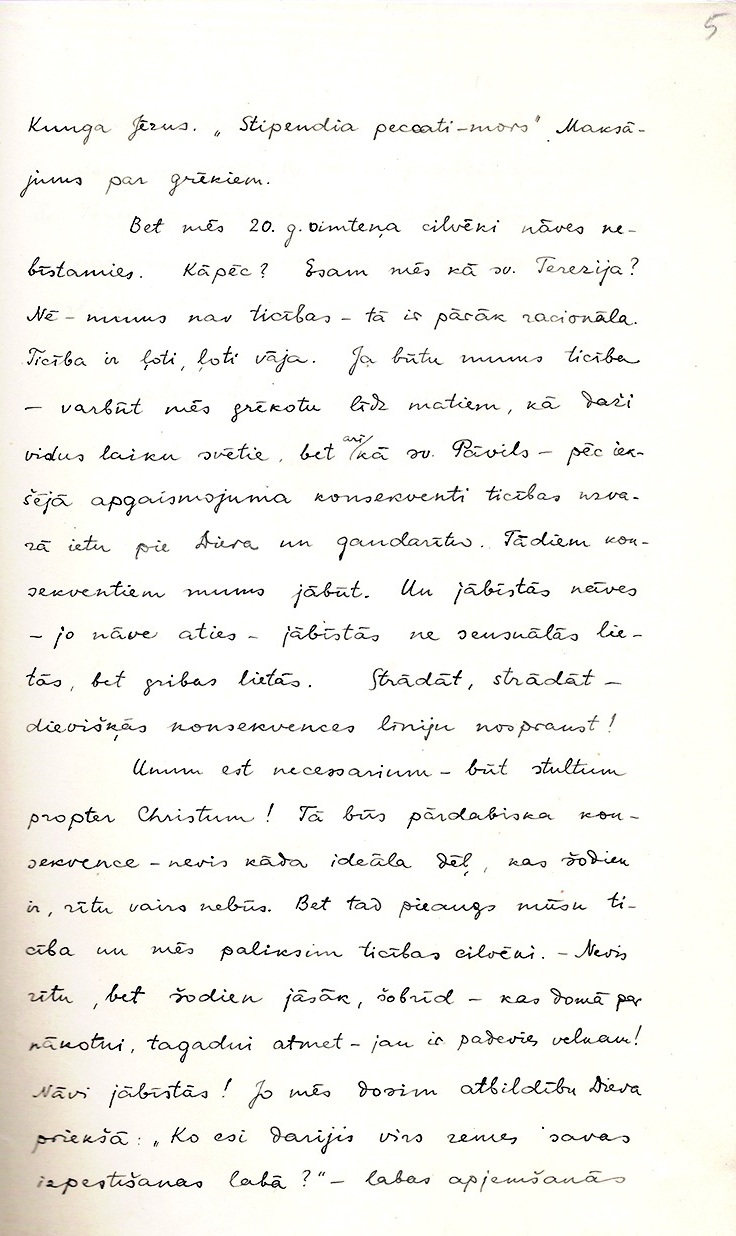 5
Kunga Jēzus. „Stipendia peccati-mors". Maksā-
jums par grēkiem.
Bet mēs 20. g. simteņa cilvēki nāves ne-
bīstamies. Kāpēc? Esam mēs kā sv. Terezija?
Nē - mums nav ticības - tā ir pārāk racionāla.
Ticība ir ļoti, ļoti vāja. Ja būtu mums ticība
- varbūt mēs grēkotu līdz matiem, kā daži
vidus laiku svētie, bet arī kā sv. Pāvils - pēc iek-
šējā apgaismojuma konsekventi ticības uzva-
rā ietu pie Dieva un gandarītu. Tādiem kon-
sekventiem mums jābūt. Un jābīstās nāves
- jo nāve aties - jābīstās ne sensuālās lie-
tās, bet gribas lietās. Strādāt, strādāt -
dievišķās konsekvences līniju nospraust!
Unum est necessarium - būt stultum
propter Christum! Tā būs pārdabiska kon-
sekvence - nevis kāda ideāla dēļ, kas šodien
ir, rītu vairs nebūs. Bet tad pieaugs mūsu ti-
cība un mēs paliksim ticības cilvēki. - Nevis
rītu, bet šodien jāsāk, šobrīd - kas domā par
nākotni, tagadni atmet - jau ir padevies velnam!
Nāvi jābīstās! Jo mēs dosim atbildību Dieva
priekšā: „Ko esi darījis virs zemes savas
izpestīšanas labā?" - labas apjemšanās